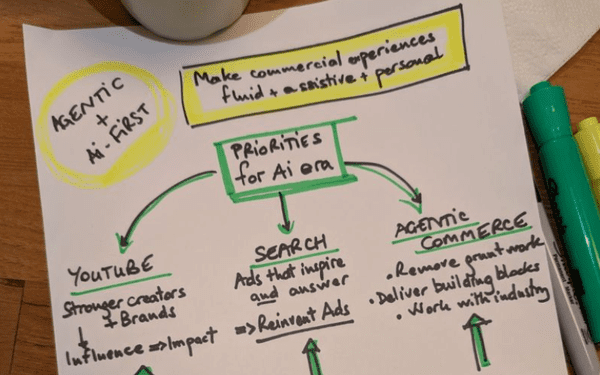 AGENTIC
+
Ai-FiRST
Make commercial experiences
fluid + assistive + personal
PRiORiTiES
for Ai era
YOUTUBE
Stronger creators
+ Brands
↓
Influence => Impact
SEARCH
Ads that inspire
and answer
=> Reinvent Ads
AGENTiC
COMMERCE
• Remove grunt work
• Deliver building blocks
• Work with industry